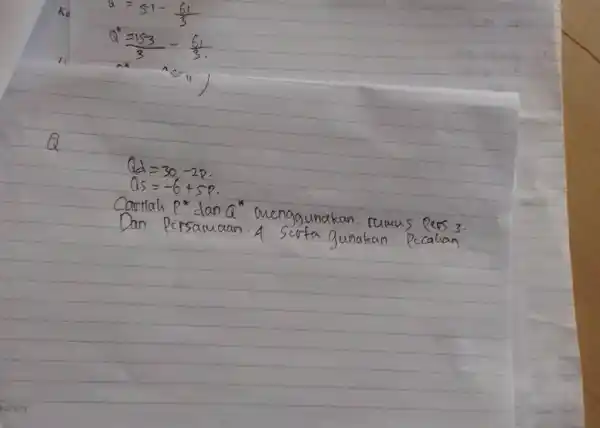 = 51 - 61/3
Q* = 153/3 - 61/3.
Q
Qd = 30 - 2P.
Qs = -6 + 5P.
Carilah P* dan Q* menggunakan rumus Pers 3.
Dan Persamaan 4 serta gunakan Pecahan